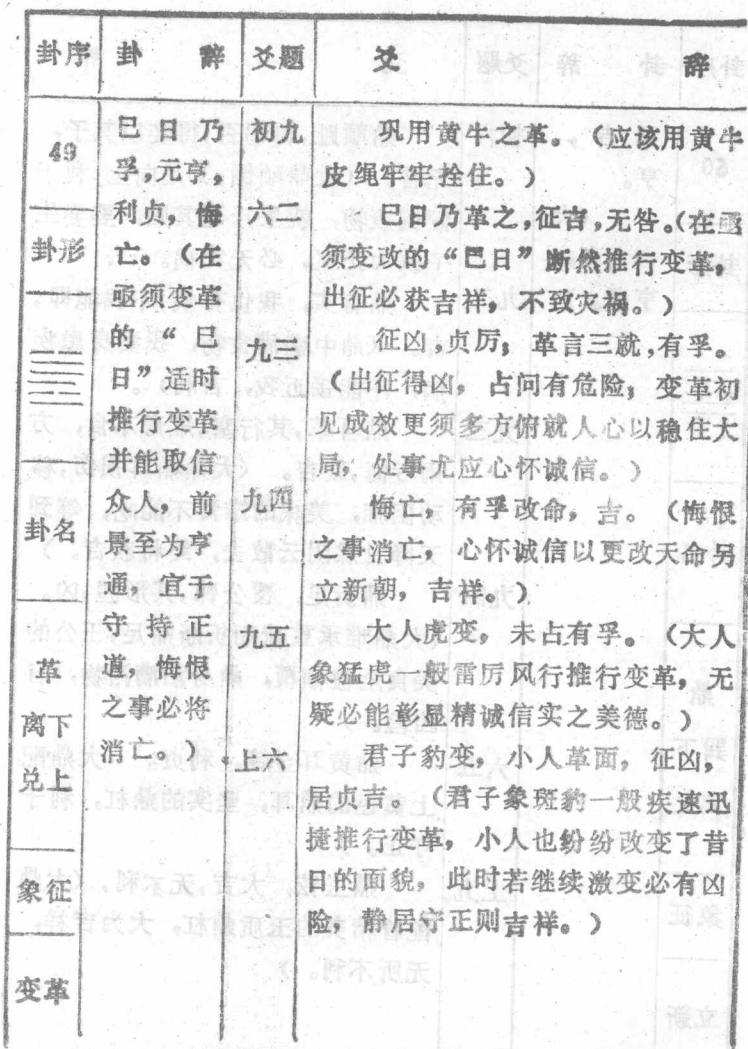 卦序 卦 辞 爻题 爻 辞
49
卦形
卦名
革
离下
兑上
象征
变革
巳日乃
孚,元亨,
利贞,悔
亡。(在
亟须变革
的“巳
日”适时
推行变革
并能取信
众人,前
景至为亨
通,宜于
守持正
道,悔恨
之事必将
消亡。)
初九
六二
九三
九四
九五
上六
巩用黄牛之革。(应该用黄牛
皮绳牢牢拴住。)
巳日乃革之,征吉,无咎。(在亟
须变改的“巴日”断然推行变革,
出征必获吉祥,不致灾祸。)
征凶,贞厉;革言三就,有孚。
(出征得凶,占问有危险;变革初
见成效更须多方俯就人心以稳住大
局,处事尤应心怀诚信。)
悔亡,有孚改命,吉。(悔恨
之事消亡,心怀诚信以更改天命另
立新朝,吉祥。)
大人虎变,未占有孚。(大人
象猛虎一般雷厉风行推行变革,无
疑必能彰显精诚信实之美德。)
君子豹变,小人革面,征凶,
居贞吉。(君子象斑豹一般疾速迅
捷推行变革,小人也纷纷改变了昔
日的面貌,此时若继续激变必有凶
险,静居守正则吉祥。)